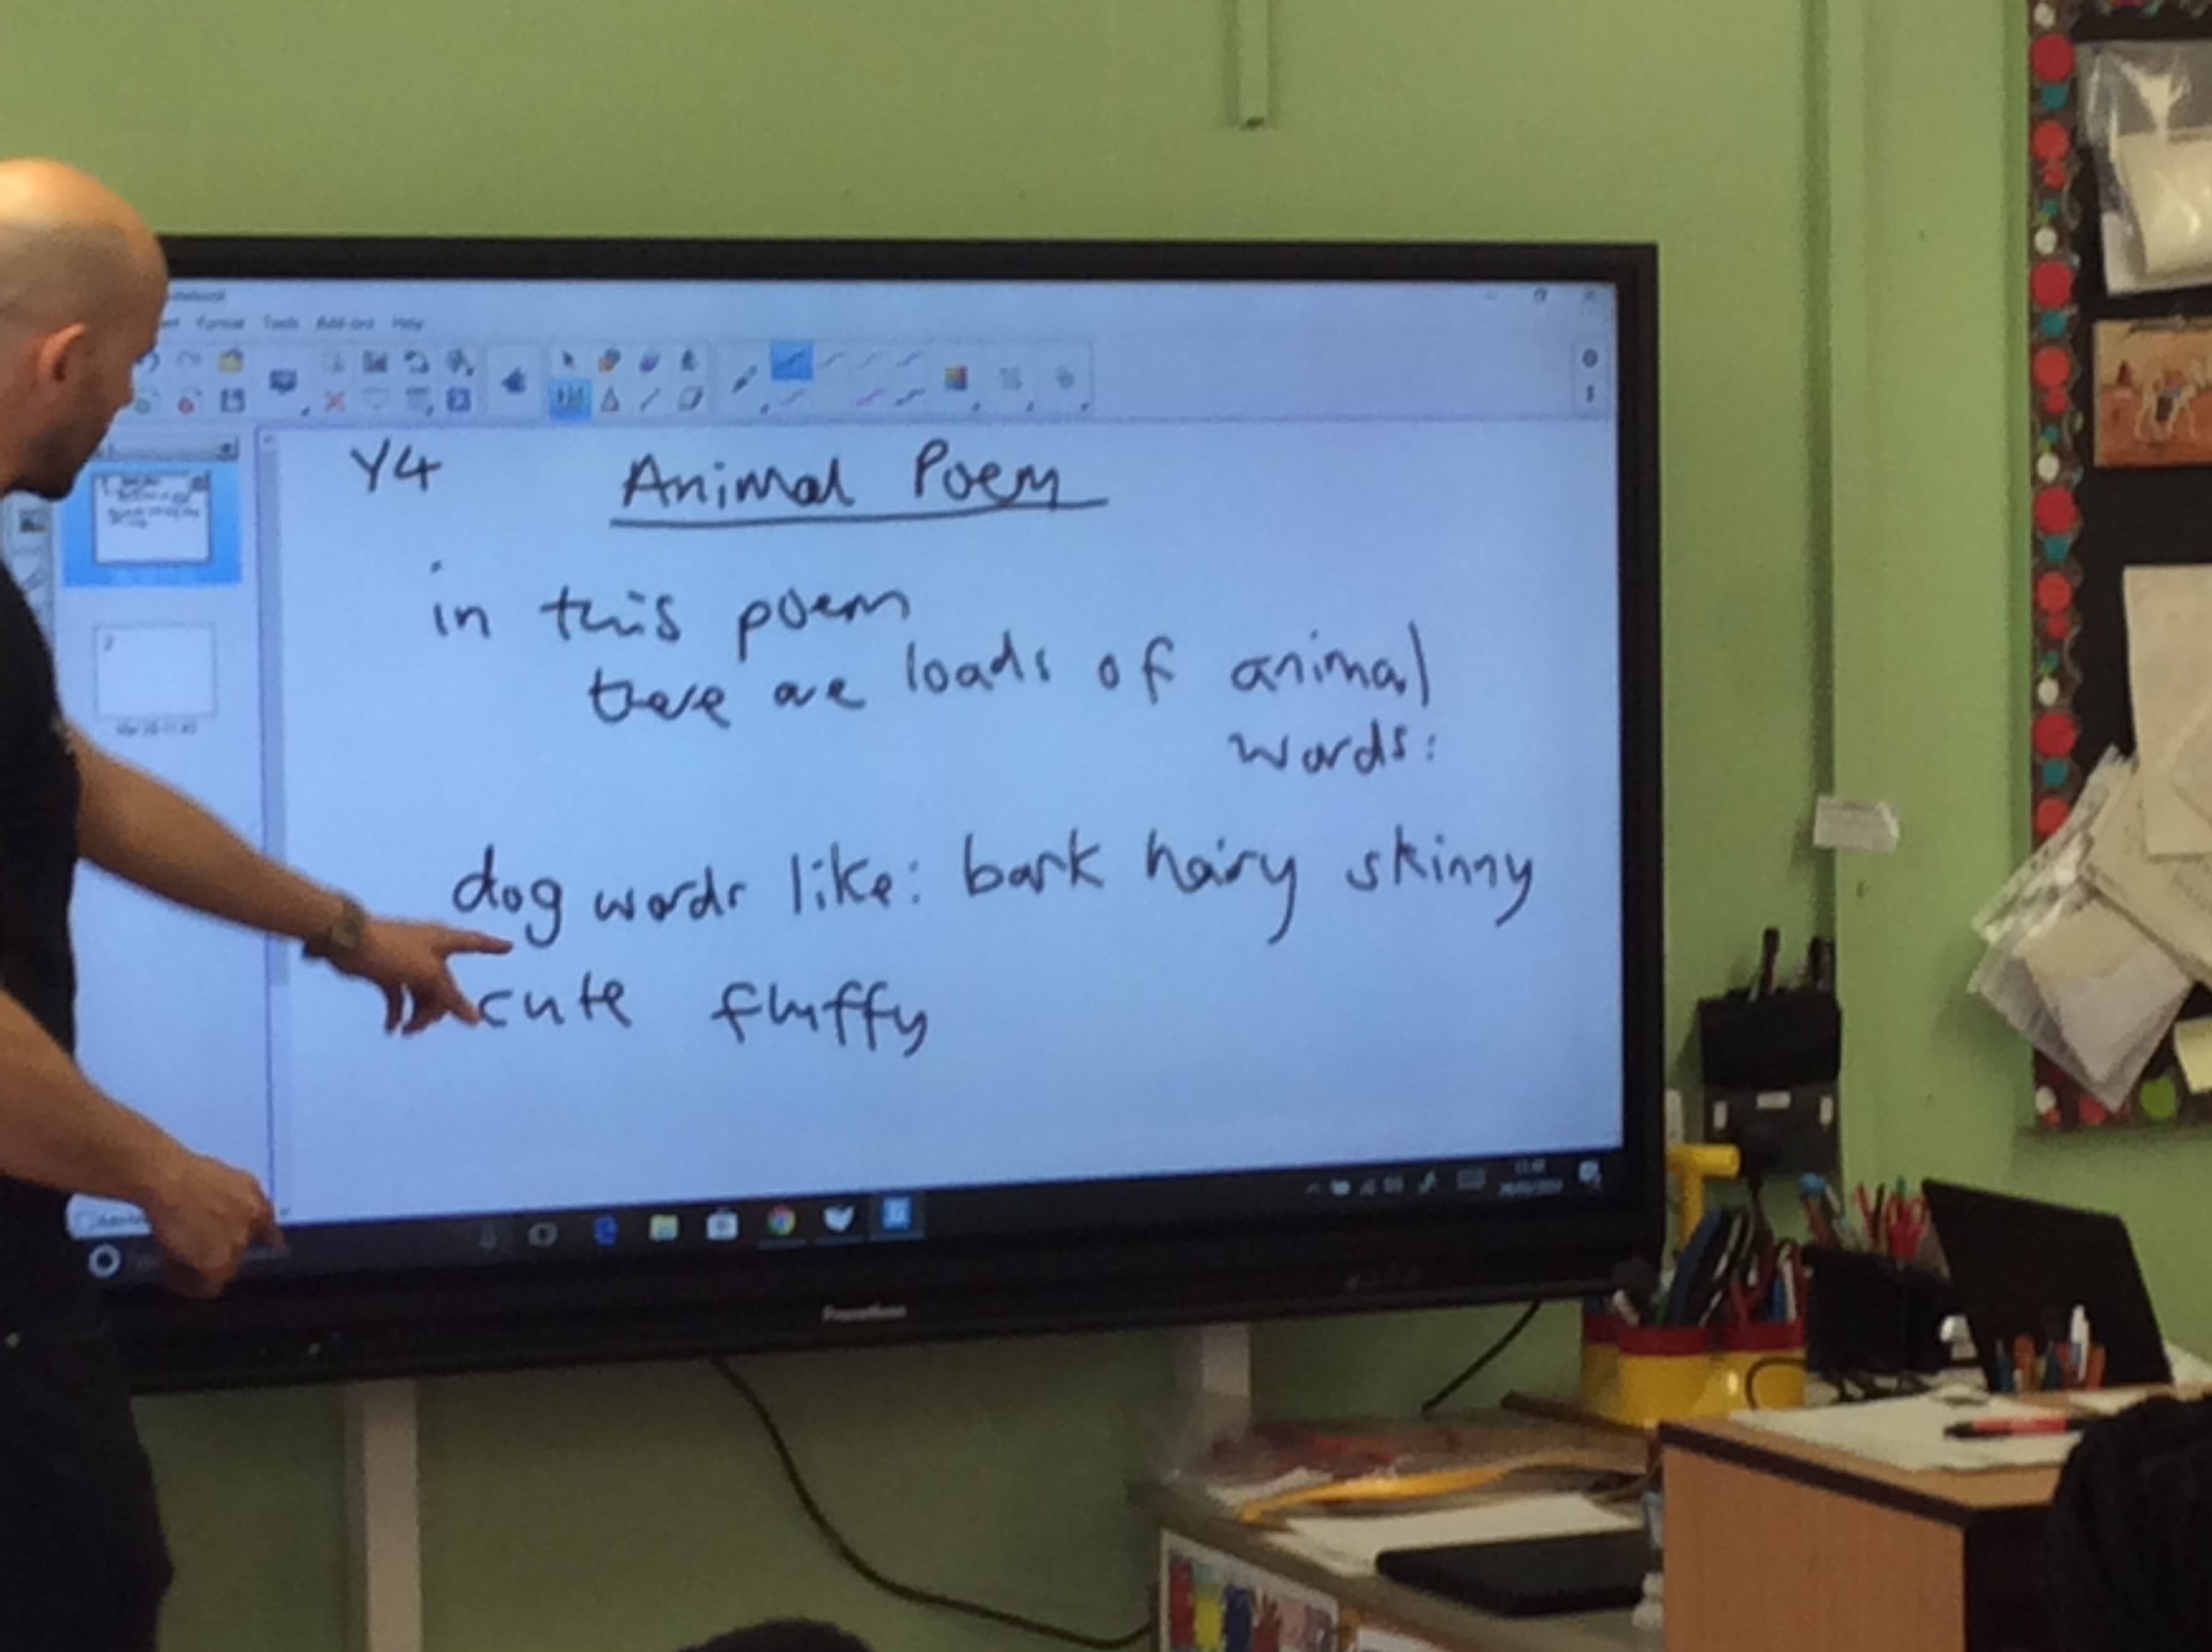 Format Tools Add-ons Help
Y4 Animal Poem
in this poem
there are loads of animal
words:
dog words like: bark hairy skinny
cute fluffy
Promethean